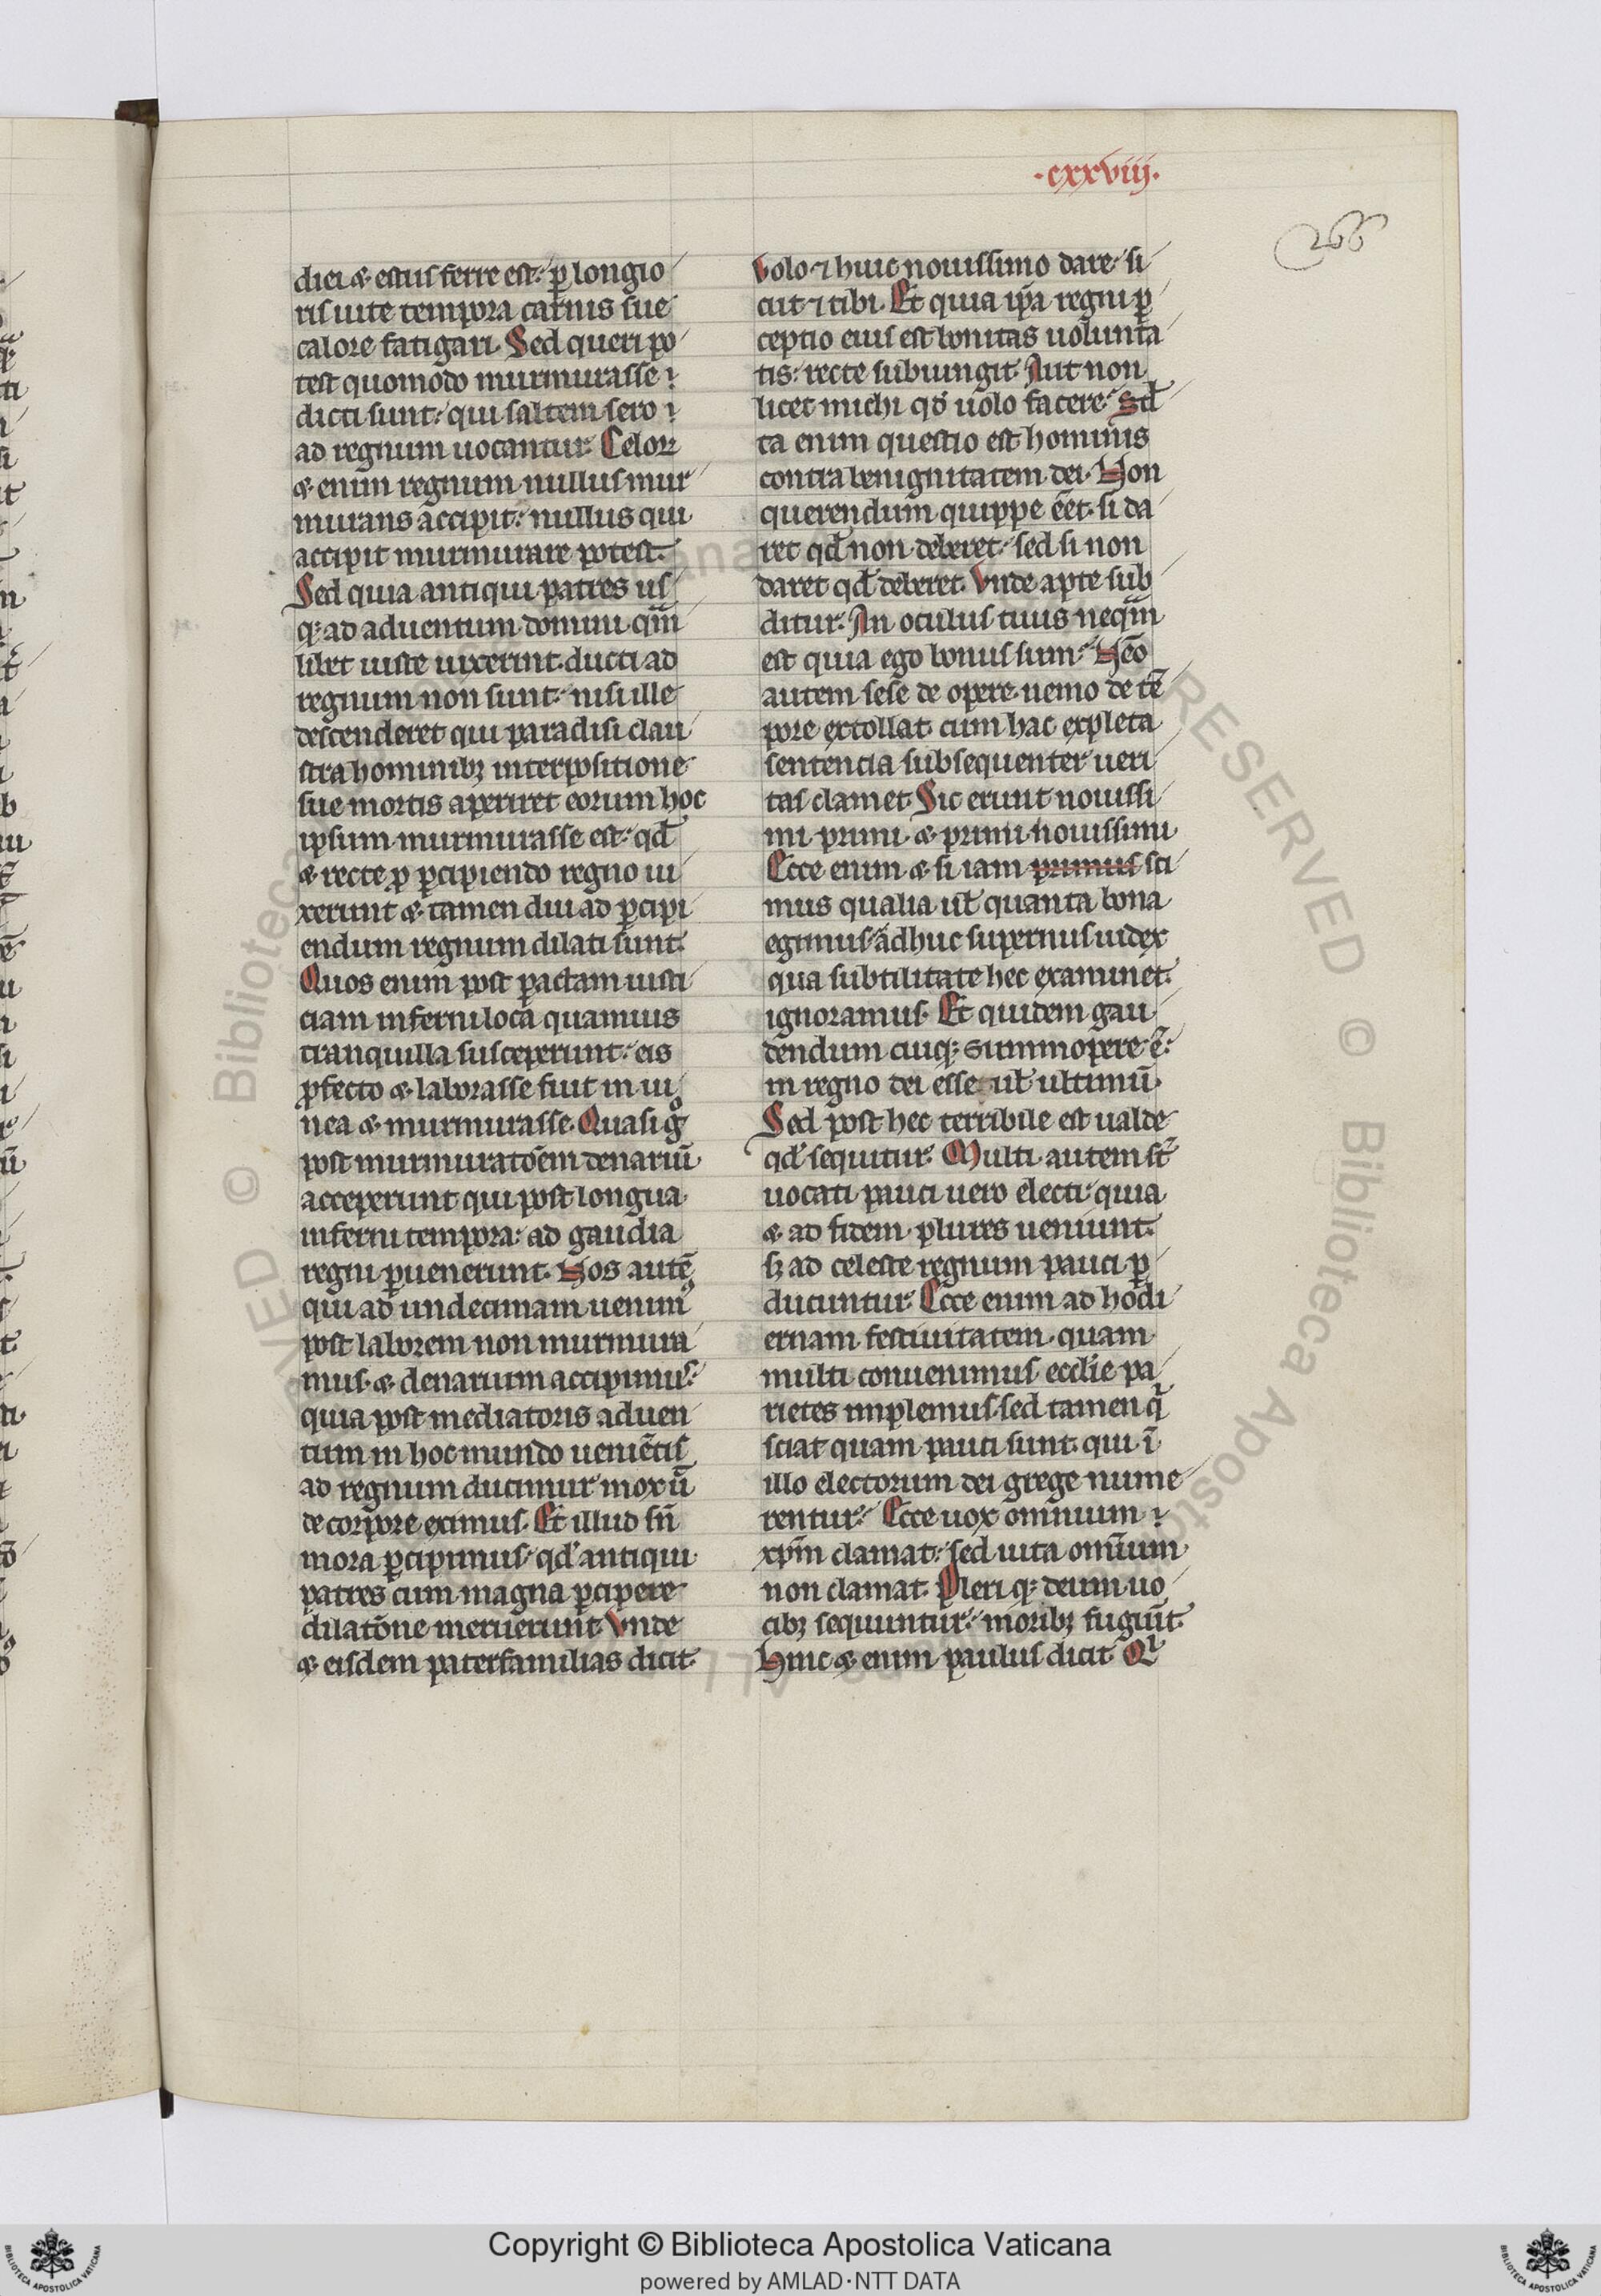 ·cxxviij·
266
diei & estus ferre est: ꝑ longio
ris uite tempora carnis sue
calore fatigari. Sed queri po
test quomodo murmurasse
dicti sunt: qui saltem sero
ad regnum uocantur. Celoꝝ
& enim regnum nullus mur
murans accipit: nullus qui
accipit murmurare potest.
Sed quia antiqui patres us
qꝫ ad aduentum domini qm̅
libet iuste uixerint. ducti ad
regnum non sunt: nisi ille
descenderet qui paradisi clau
stra hominibꝫ interpositione
sue mortis aperiret eorum hoc
ipsum murmurasse est: qd̅
& recte ꝓ ꝑcipiendo regno ui
xerunt & tamen diu ad ꝑcipi
endum regnum dilati sunt.
Quos enim post ꝑactam iusti
ciam inferni loca quamuis
tranquilla susceperunt: eis
ꝓfecto & laborasse fuit in ui
nea & murmurasse. Quasi gͦ
post murmurato̅em denariu̅
acceperunt qui post longua
inferni tempora: ad gaudia
regni ꝑuenerunt. Nos aute̅
qui ad undecimam uenimꝰ
post laborem non murmura
mus. & denarium accipimus:
quia post mediatoris aduen
tum in hoc mundo uenie̅tis
ad regnum ducimur mox u̅
de corpore eximus. Et illud sn̅
mora ꝑcipimus: qd̅ antiqui
patres cum magna ꝑcipere
dilato̅ne meruerunt. Vnde
& eisdem paterfamilias dicit.
Volo ⁊ huic nouissimo dare: si
cut ⁊ tibi. Et quia ip̅a regni ꝑ
ceptio eius est bonitas uolunta
tis: recte subiungit. Aut non
licet michi qd̅ uolo facere: Sd̅
ta enim questio est hominis
contra benignitatem dei. Non
querendum quippe e̅et. si da
ret qd̅ non deberet: sed si non
daret qd̅ deberet. Vnde apte sub
ditur. An oculus tuus neqm̅
est quia ego bonus sum: Neo̅
autem sese de opere. nemo de te̅
pore extollat. cum hac expleta
sentencia subsequenter ueri
tas clamet. Sic erunt nouissi
mi primi. & primi nouissimi
Ecce enim & si iam primus sci
mus qualia ul̅ quanta bona
egimus: adhuc supernus iudex
qua subtilitate hec examinet.
ignoramus. Et quidem gau
dendum cuiqꝫ summopere e̅:
in regno dei esse ul̅ ultimu̅.
Sed post hec terribile est ualde
qd̅ sequitur. Multi autem st̅
uocati pauci uero electi: quia
& ad fidem plures ueniunt.
sꝫ ad celeste regnum pauci ꝑ
ducuntur. Ecce enim ad hodi
ernam festiuitatem quam
multi conuenimus eccl̅ie pa
rietes implemus. sed tamen q̅
sciat quam pauci sunt. qui i̅
illo electorum dei grege nume
rentur: Ecce uox omnium
xp̅m clamat: sed uita omnium
non clamat. Pleri qꝫ deum uo
cibꝫ sequuntur: moribꝫ fugiu̅t.
Hinc & enim paulus dicit. Qͥ